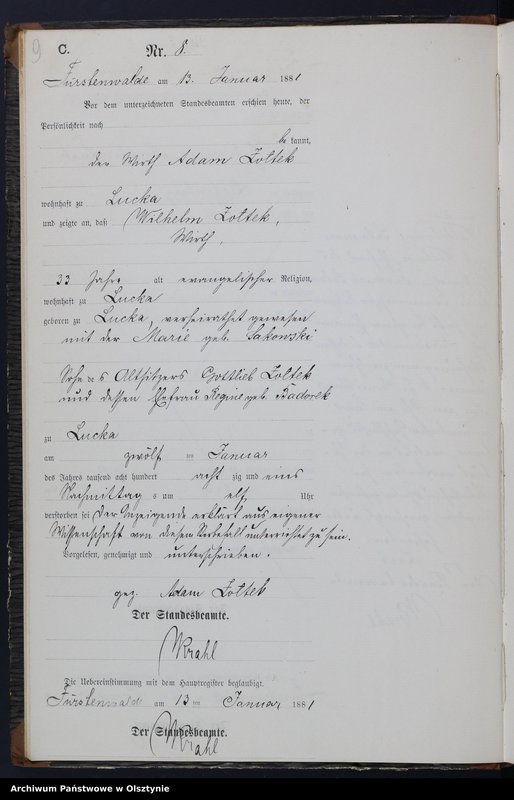 9
C.
Nr. 8.
Fürstenwalde am 13. Januar 1881
Vor dem unterzeichneten Standesbeamten erschien heute, der
Persönlichkeit nach
be kannt,
der Wirth Adam Zoltek
wohnhaft zu Lucka
und zeigte an, daß Wilhelm Zoltek,
Wirth,
33 Jahre alt evangelischer Religion,
wohnhaft zu Lucka
geboren zu Lucka, verheirathet gewesen
mit der Marie geb. Sakowski
Sohn des Altsitzers Gottlieb Zoltek
und dessen Ehefrau Regine geb. Badorek
zu Lucka
am zwölf ten Januar
des Jahres tausend acht hundert acht zig und eins
Nachmittag s um elf Uhr
verstorben sei Der Anzeigende erklärt aus eigener
Wissenschaft von diesem Sterbefall unterrichtet zu sein.
Vorgelesen, genehmigt und unterschrieben.
gez. Adam Zoltek
Der Standesbeamte.
Krahl
Die Uebereinstimmung mit dem Hauptregister beglaubigt.
Fürstenwalde am 13 ten Januar 1881
Der Standesbeamte.
Krahl
Archiwum Państwowe w Olsztynie